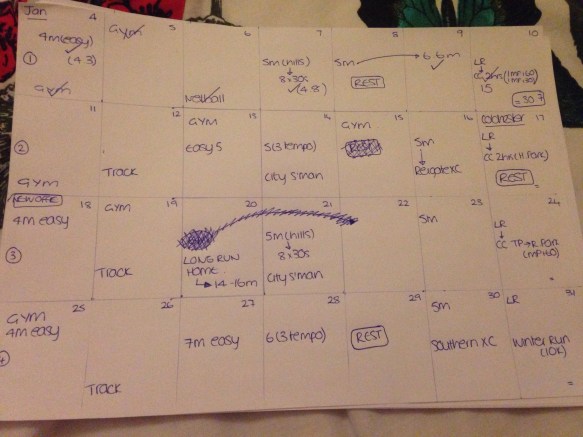 Jan
4
4m(easy)
(4.3)
①
Gym
5
Gym
6
Netball
7
5m(hills)
8x30s
(4.8)
8
5m
REST
9
6.6m
10
LR
CC
15
=30.7
11
②
Gym
12
Track
13
Gym
easy 5
14
5(3tempo)
City S'man
15
Gym
REST
16
5m
Reigate XC
17
Colchester
LR
CC 2hrs(H.Park)
REST
=
NEW OFFICE
18
4m easy
③
19
Gym
Track
20
LONG RUN
HOME
14-16m
21
5m(hills)
8x30s
City S'man
22
23
5m
24
LR
CC TP→R.Park
(mp:60)
=
25
Gym
4m easy
4
26
Track
27
7m easy
28
6(3tempo)
29
REST
30
5m
Southern XC
31
LR
Winter Run
(10k)
=